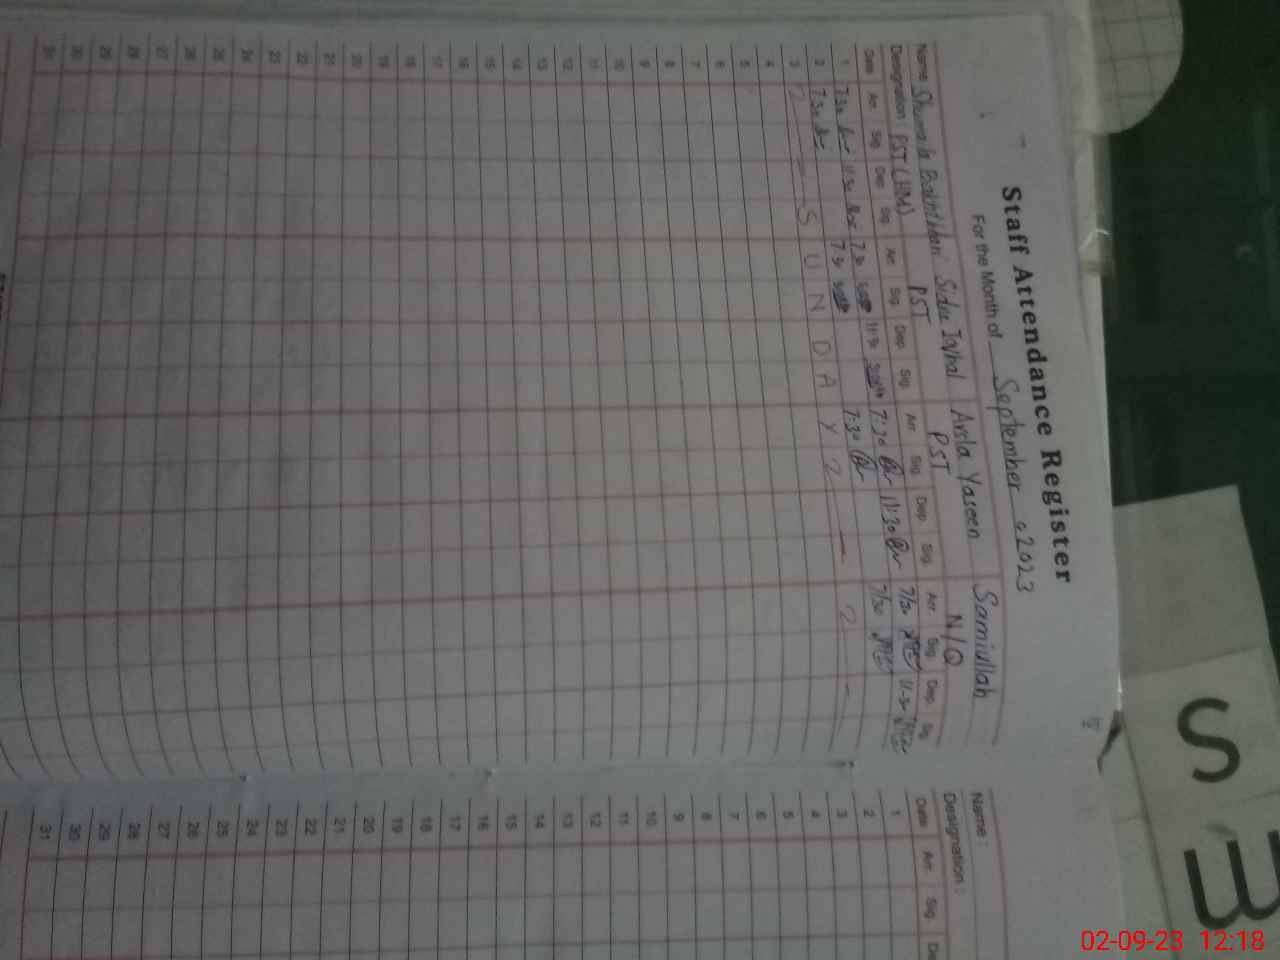 Staff Attendance Register
For the Month of September 2023
Name Bakhtiari Sidra Iqbal Arsla Yaseen Samiullah
Designation PST (HM) PST PST N/Q
Date Arr. Sig. Dep. Sig. Arr. Sig. Dep. Sig. Arr. Sig. Dep. Sig. Arr. Sig. Dep. Sig.
1 7:30 11:30 7:30 11:30 7:30 11:30 7/30 11-30
2 7:30 7:30 7:30 7/30
3 2 S U N D A Y 2 2
4
5
6
7
8
9
10
11
12
13
14
15
16
17
18
19
20
21
22
23
24
25
26
27
28
29
30
31
Name :
Designation :
Date Arr. Sig.
1
2
3
4
5
6
7
8
9
10
11
12
13
14
15
16
17
18
19
20
21
22
23
24
25
26
27
28
29
30
31
S
02-09-23 12:18